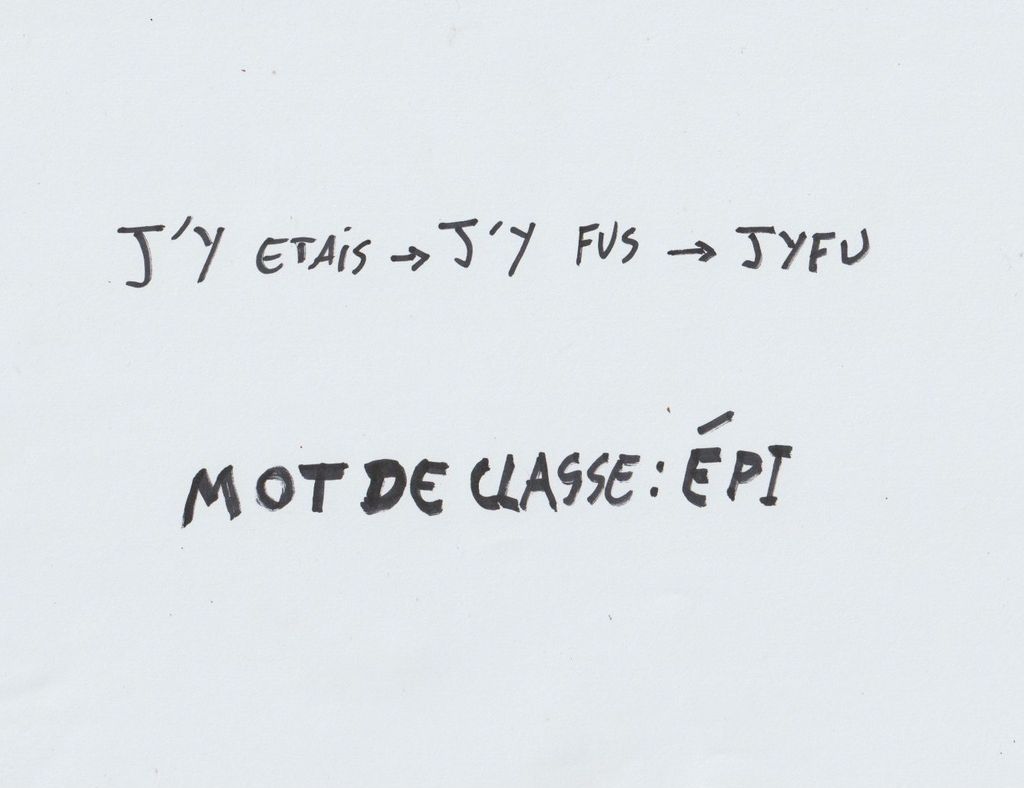 J'Y ETAiS → J'Y FUS → JYFU
MOT DE CLASSE : ÉPI